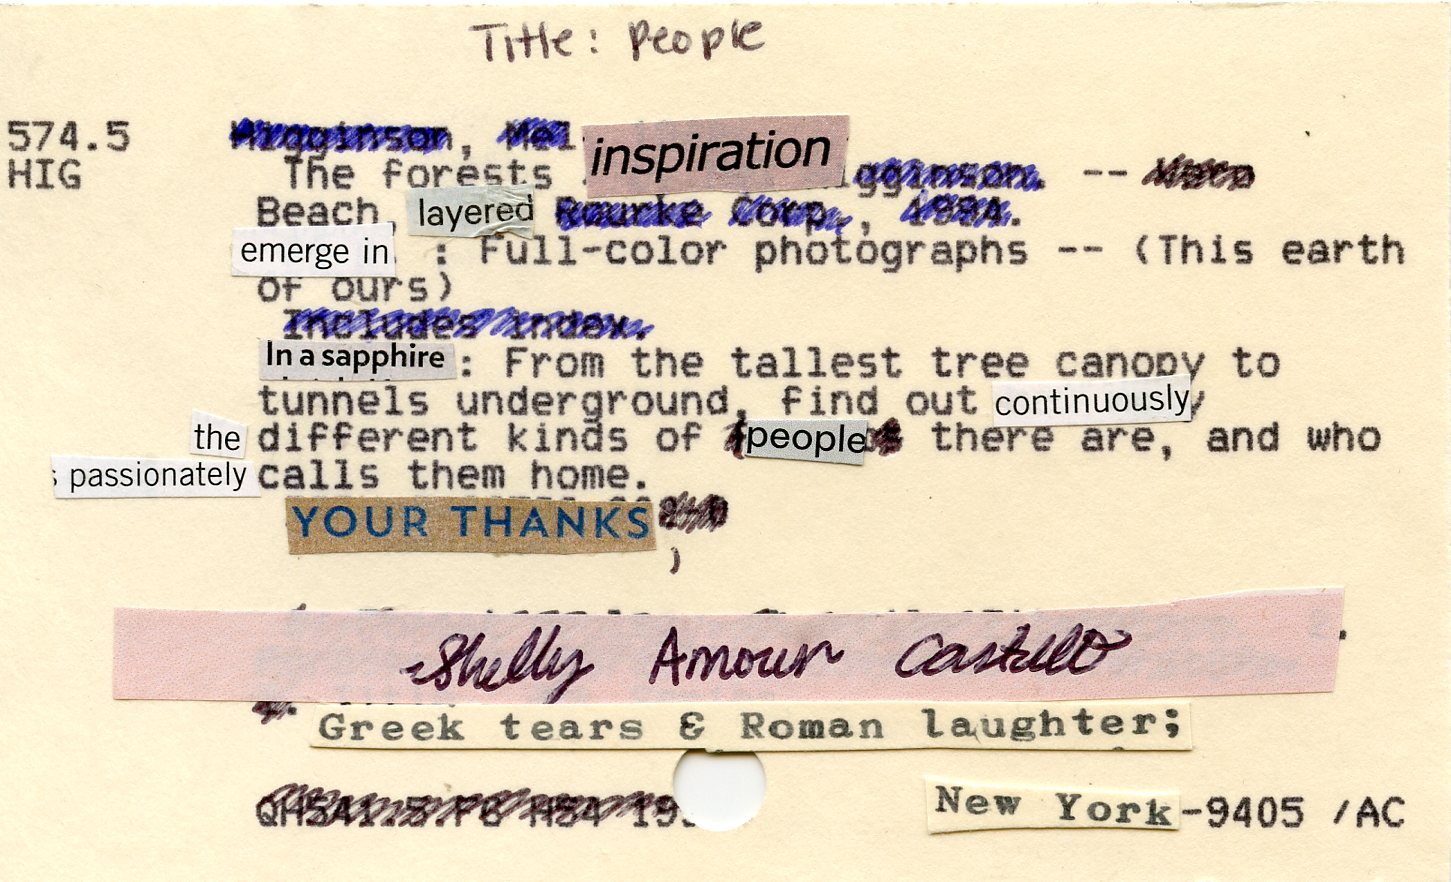 Title: People
574.5 Higginson, Mel inspiration
HIG The forests igginson. -- Vero
Beach, layered Rourke Corp., 1994.
emerge in : Full-color photographs -- (This earth
of ours)
Includes index.
In a sapphire : From the tallest tree canopy to
tunnels underground, find out continuously
the different kinds of people there are, and who
passionately calls them home.
YOUR THANKS
)
Shelly Amour Castillo
Greek tears & Roman laughter;
QH541.5.F6 H54 199
New York-9405 /AC